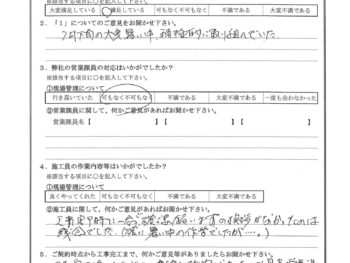 ※該当する項目に○を記入して下さい。
大変満足している 満足している 可もなく不可もなく 不満である 大変不満である
2．「1」についてのご意見をお聞かせ下さい。
7月下旬の大変暑い中、積極的に取り組んでいた
3．弊社の営業課員の対応はいかがでしたか？
※該当する項目に○を記入して下さい。
①現場管理について
行き届いていた 可もなく不可もなく 不満である 大変不満である 一度も会わなかった
②営業課員に関して、何かご意見があればお聞かせ下さい。
営業課員名【 】【 】
4．施工員の作業内容等はいかがでしたか？
※該当する項目に○を記入して下さい。
①現場管理について
良くやってくれた 可もなく不可もなく 不満である 大変不満である
②施工員に関して、何かご意見があればお聞かせ下さい。
の挨拶がなかったのは
残念でした（暑い中の作業でしたが…。）
5．ご契約時点から工事完工まで、何かご意見等がありましたらお聞かせ下さい。